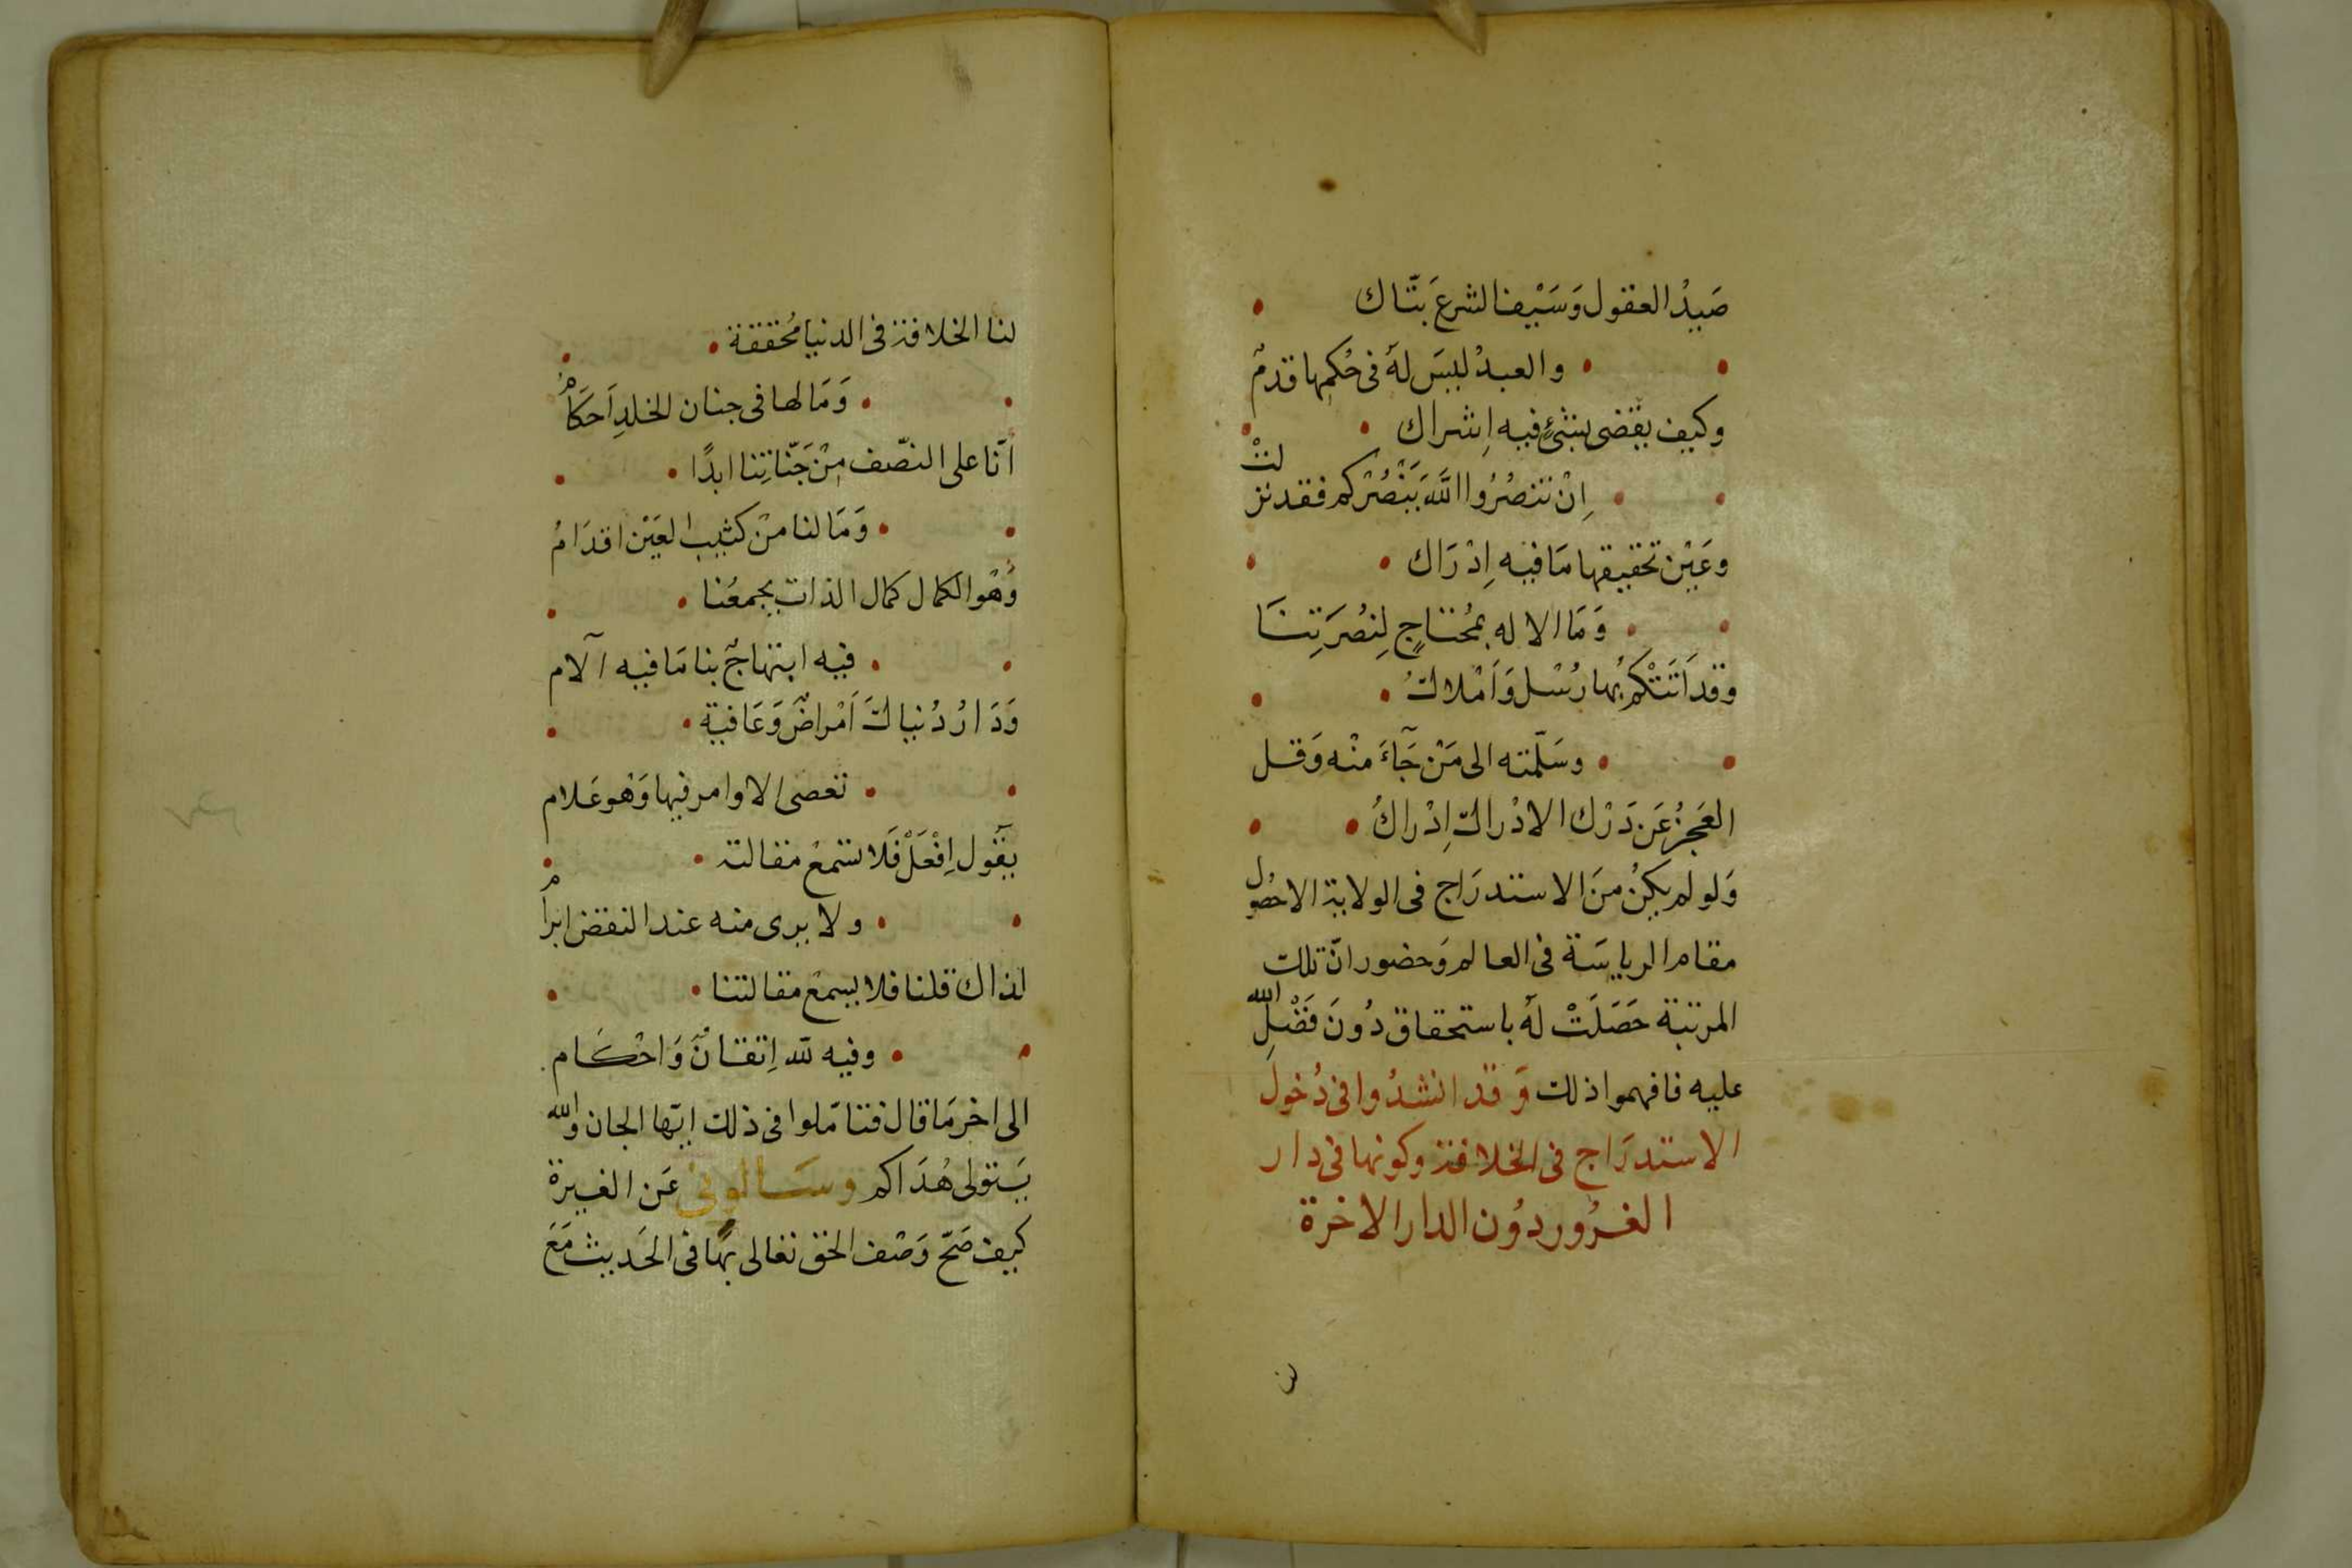 صَيدُ العقول وَسَيْف الشرعَ بتّاك
والعبدُ ليسَ لهُ في حُكمِها قدمٌ
وكيف يقضى بشئٍ فيه اِشراك
اِنْ تنصُرُوا اللهَ يَنْصُرْكم فقد نزلتْ
وعَيْن تحقيقها مَا فيه اِدْرَاك
وَمَا الاله بمُحتاجٍ لِنُصرَتِنَا
وقد اَتتْكم بُها رُسْل وَاَمْلاكُ
وسَلّمته الى مَنْ جَآءَ منْه وَقل
العَجزُ عَن دَرْك الادْراكِ اِدْراكُ
وَلو لم يكنْ منَ الاستدرَاج في الولاية الاحصُول
مقام الرياسَة في العالم وَحضور انّ تلك
المرتبة حَصَلَتْ لهُ باستحقاق دُونَ فَضْلِ الله
عليه فافهموا ذلك وَقد انشدُوا في دُخول
الاستدرَاج في الخلافة وكونها في دار
الغرُور دوُن الدار الاخرة
لنا الخلافة في الدنيا مُحققة
وَمَا لها في جنان الخلدِ اَحكامُ
انّا على النصّف مِنْ جَنّاتِنا ابدًا
وَمَا لنا منْ كثيب العَيْن اقدَامُ
وَهْو الكمال كمال الذات يجمعُنا
فيه ابتهاجٌ بنا مَا فيه آلام
وَدَارُ دُنياكَ اَمْراضٌ وَعَافية
تعصى الاوامر فيها وَهو عَلام
يقول اِفْعَلْ فَلا تسمعْ مقالته
ولا يرى منه عند النقض ابرامُ
لذاك قلنا فلا يسمعْ مقالتنا
وفيه لله اِتقانٌ وَاحْكَام
الى اخر مَا قال فتامّلوا في ذلك ايّها الجان والله
يَتولى هُدَاكم وسَالوني عَن الغيرة
كيف صَحّ وَصْف الحق تعالى بهَا في الحَديث مَعَ